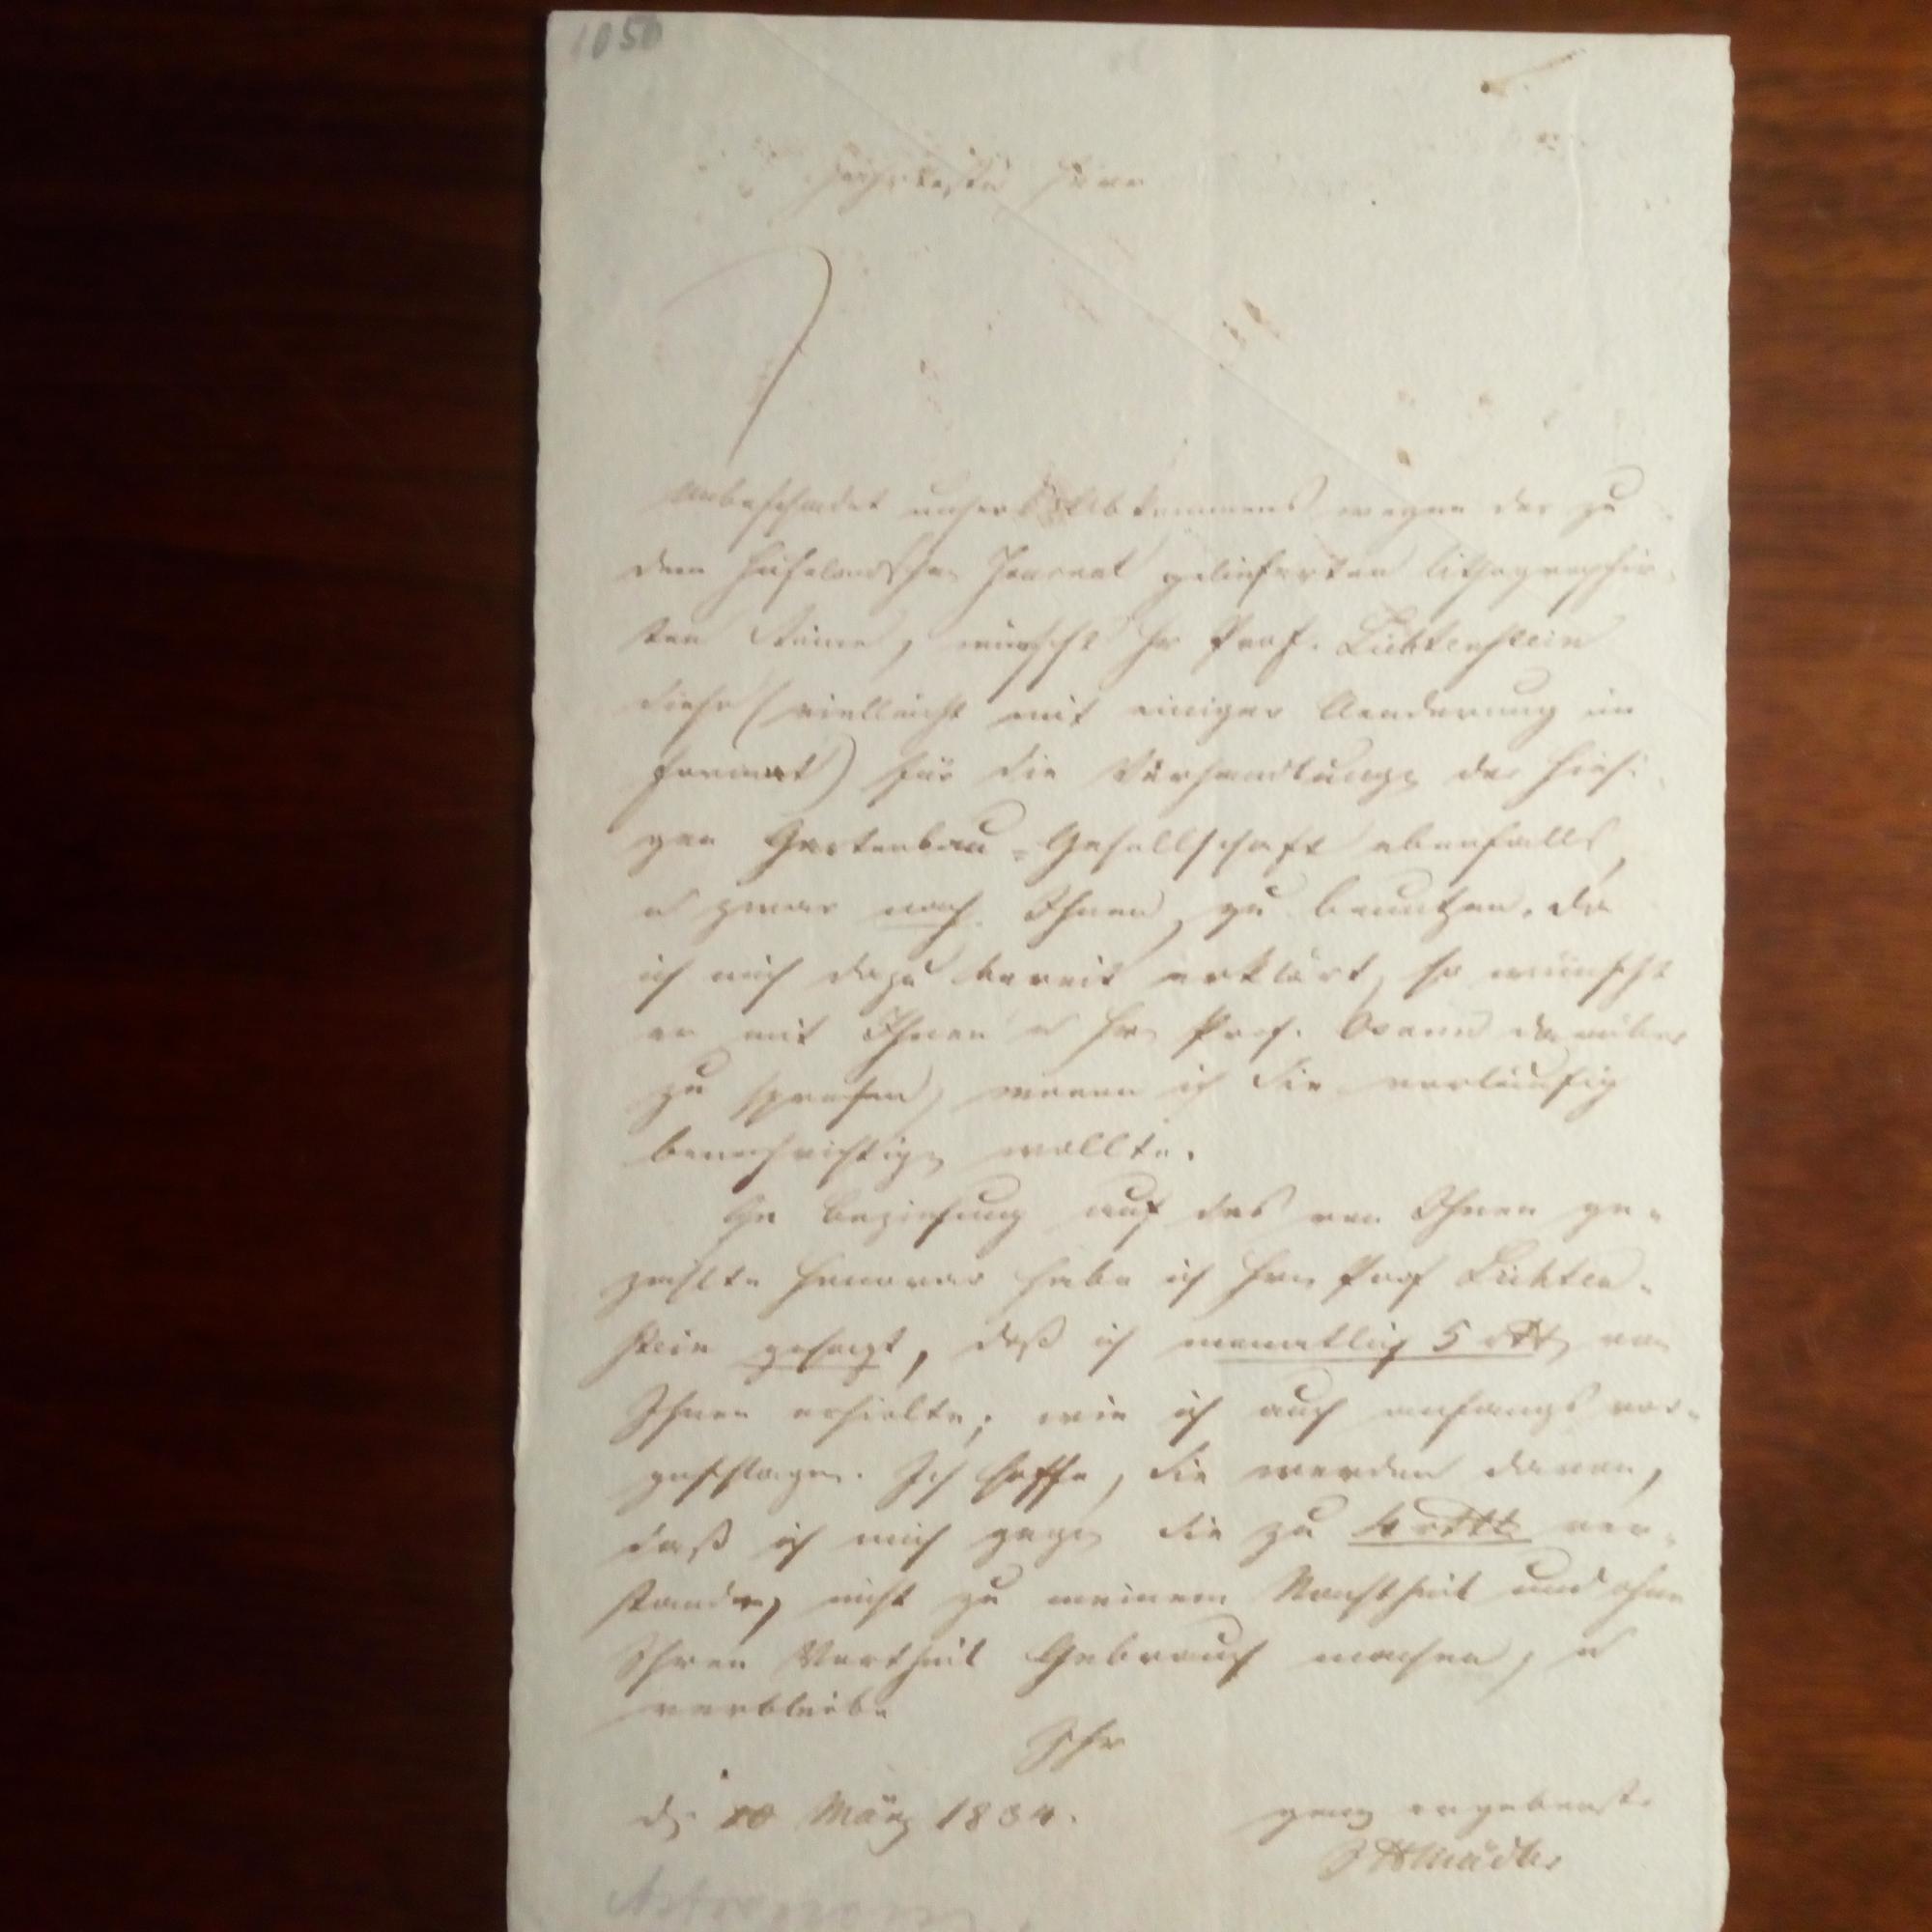 1050
Hochgeehrtester Herr
Unbeschadet unsers Abkommens wegen der zu
dem Hufelandschen Journal gelieferten lithographir-
ten Steine, wünscht Hr Prof. Lichtenstein
diese (vielleicht mit einiger Aenderung im
Format) für die Verhandlungen der hiesi-
gen Gartenbau-Gesellschaft ebenfalls,
u zwar nach Ihnen, zu benutzen. Da
ich mich dazu bereit erklärt, so wünscht
er mit Ihnen u Hrn Prof. Osann darüber
zu sprechen, wovon ich Sie vorläufig
benachrichtigen wollte.
In Beziehung auf das von Ihnen ge-
zahlte Honorar habe ich Hrn Prof Lichten-
stein gesagt, daß ich monatlich 5 rth von
Ihnen erhielte; wie ich auch anfangs vor-
geschlagen. Ich hoffe, Sie werden davon,
daß ich mich gegen Sie zu 4 rth ver-
standen, nicht zu meinem Nachtheil und ohne
Ihren Vortheil Gebrauch machen, u
verbleibe
Ihr
d. März 1834.
ganz ergebenster
JHMädler
Astronom